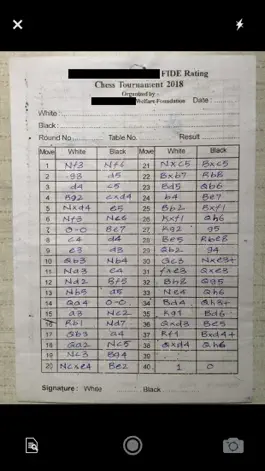 FIDE Rating
Chess Tournament 2018
Organized by :
Welfare Foundation Date :
White :
Black :
Round No. Table No. Result
Move White Black Move White Black
1 Nf3 Nf6 21 Nxc5 Bxc5
2 g3 d5 22 Bxb7 Rb8
3 d4 c5 23 Bd5 Qb6
4 Bg2 cxd4 24 b4 Be7
5 Nxd4 e5 25 Bb2 Bxf1
6 Nf3 Nc6 26 Kxf1 Qh6
7 0-0 Be7 27 Kg2 g5
8 c4 d4 28 Be5 Rbe8
9 e3 d3 29 Qb2 g4
10 Qb3 Nb4 30 Qc3 Nxe3+
11 Na3 e4 31 fxe3 Qxe3
12 Nd2 Bf5 32 Bh8 Qg5
13 Nb5 a5 33 Ne4 Qh6
14 Qa4 0-0 34 Bd4 Qh3+
15 a3 Nc2 35 Kg1 Bd6
16 Rb1 Nd7 36 Qxd3 Be5
17 Qb3 a4 37 Rf1 Bxd4+
18 Qa2 Nc5 38 Qxd4 Qh6
19 Nc3 Bg4 39
20 Ncxe4 Be2 40 1 0
Signature : White Black :